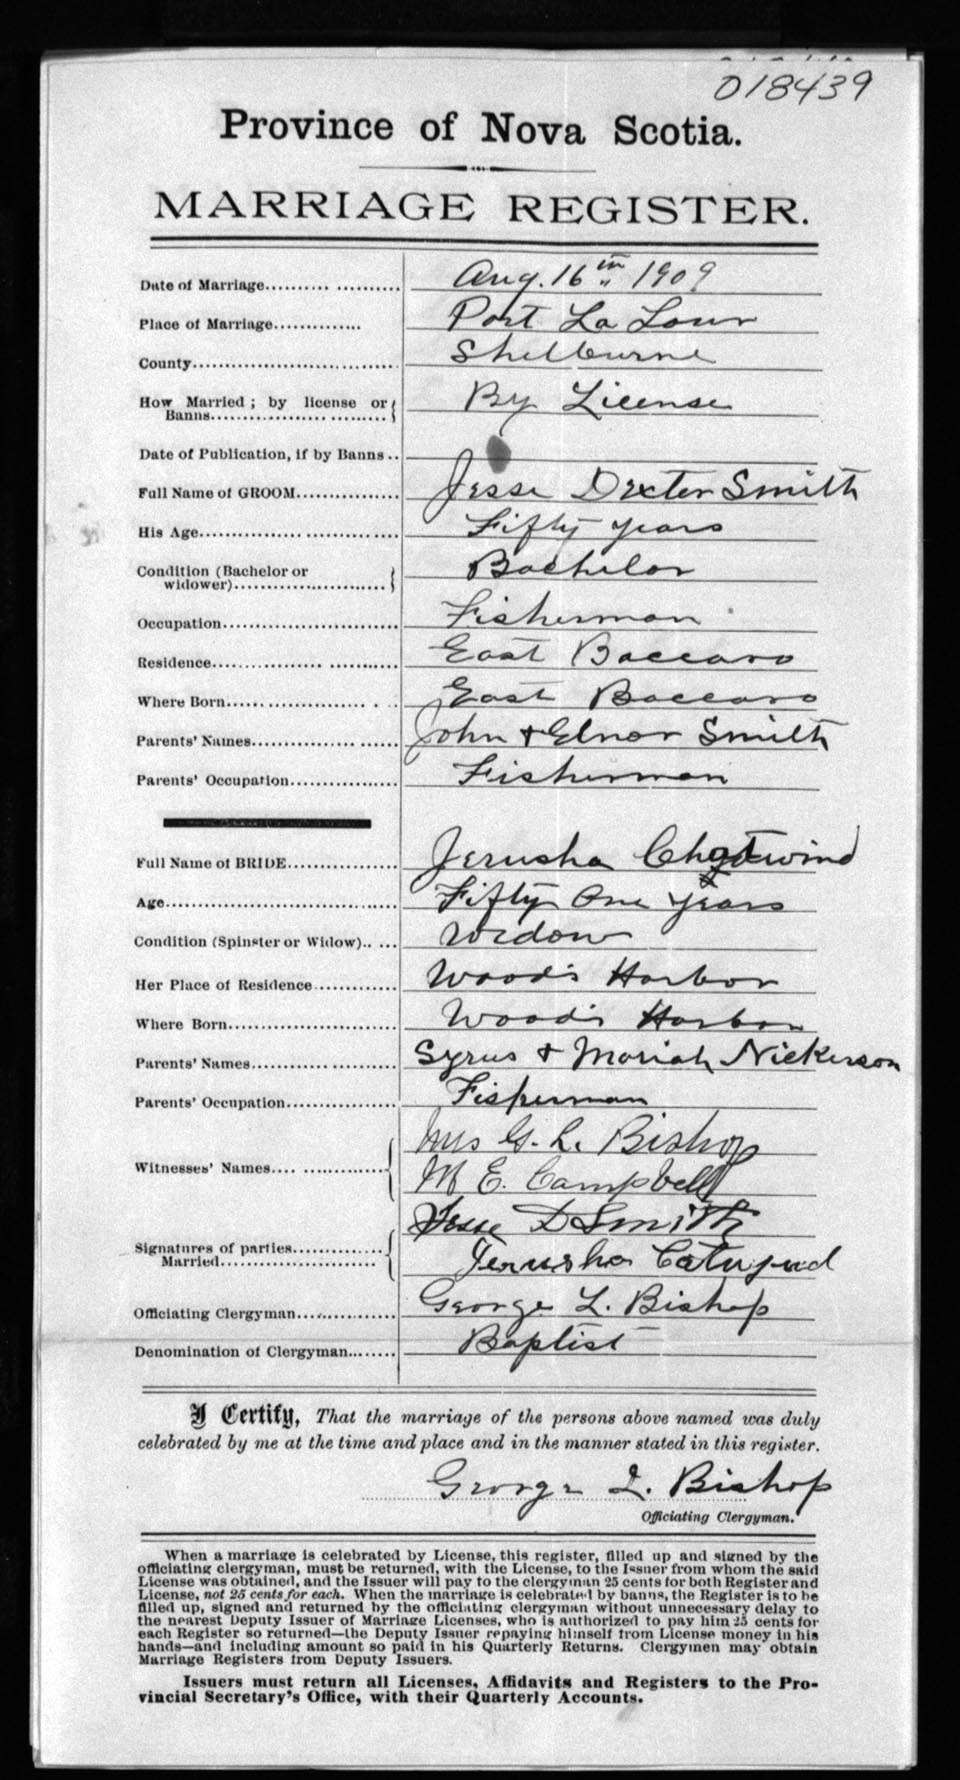 018439
Province of Nova Scotia.
MARRIAGE REGISTER.
Date of Marriage.................... Aug. 16th, 1909
Place of Marriage.............. Port La Tour
County................................ Shelburne
How Married ; by license or
Banns........................... By License
Date of Publication, if by Banns ..
Full Name of GROOM................ Jesse Dexter Smith
His Age................................ Fifty years
Condition (Bachelor or
widower)......................... Bachelor
Occupation........................... Fisherman
Residence........................... East Baccaro
Where Born......................... East Baccaro
Parents' Names..................... John & Elnor Smith
Parents' Occupation................ Fisherman
Full Name of BRIDE................ Jerusha Chatwind
Age.................................... Fifty One Years
Condition (Spinster or Widow).. ... Widow
Her Place of Residence............. Wood's Harbor
Where Born......................... Wood's Harbor
Parents' Names..................... Syrus & Moriah Nickerson
Parents' Occupation................ Fisherman
Mrs G. L. Bishop
Witnesses' Names.... .............
M E. Campbell
Jesse D Smith
Signatures of parties...............
Married........................ Jerusha
Officiating Clergyman............. George L. Bishop
Denomination of Clergyman....... Baptist
I Certify, That the marriage of the persons above named was duly
celebrated by me at the time and place and in the manner stated in this register.
George L. Bishop
Officiating Clergyman.
When a marriage is celebrated by License, this register, filled up and signed by the
officiating clergyman, must be returned, with the License, to the Issuer from whom the said
License was obtained, and the Issuer will pay to the clergyman 25 cents for both Register and
License, not 25 cents for each. When the marriage is celebrated by banns, the Register is to be
filled up, signed and returned by the officiating clergyman without unnecessary delay to
the nearest Deputy Issuer of Marriage Licenses, who is authorized to pay him 25 cents for
each Register so returned—the Deputy Issuer repaying himself from License money in his
hands—and including amount so paid in his Quarterly Returns. Clergymen may obtain
Marriage Registers from Deputy Issuers.
Issuers must return all Licenses, Affidavits and Registers to the Pro-
vincial Secretary's Office, with their Quarterly Accounts.